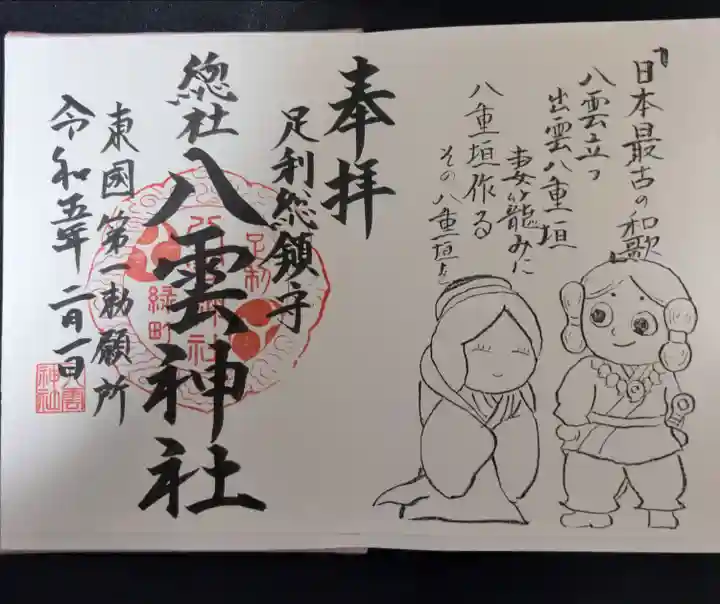 『日本最古の和歌』
八雲立つ
出雲八重垣
妻籠みに
八重垣作る
その八重垣を
奉拝
足利総鎮守
總社
八雲神社
東國第一勅願所
令和五年二月一日
足利
八雲神社
緑町
八雲
神社